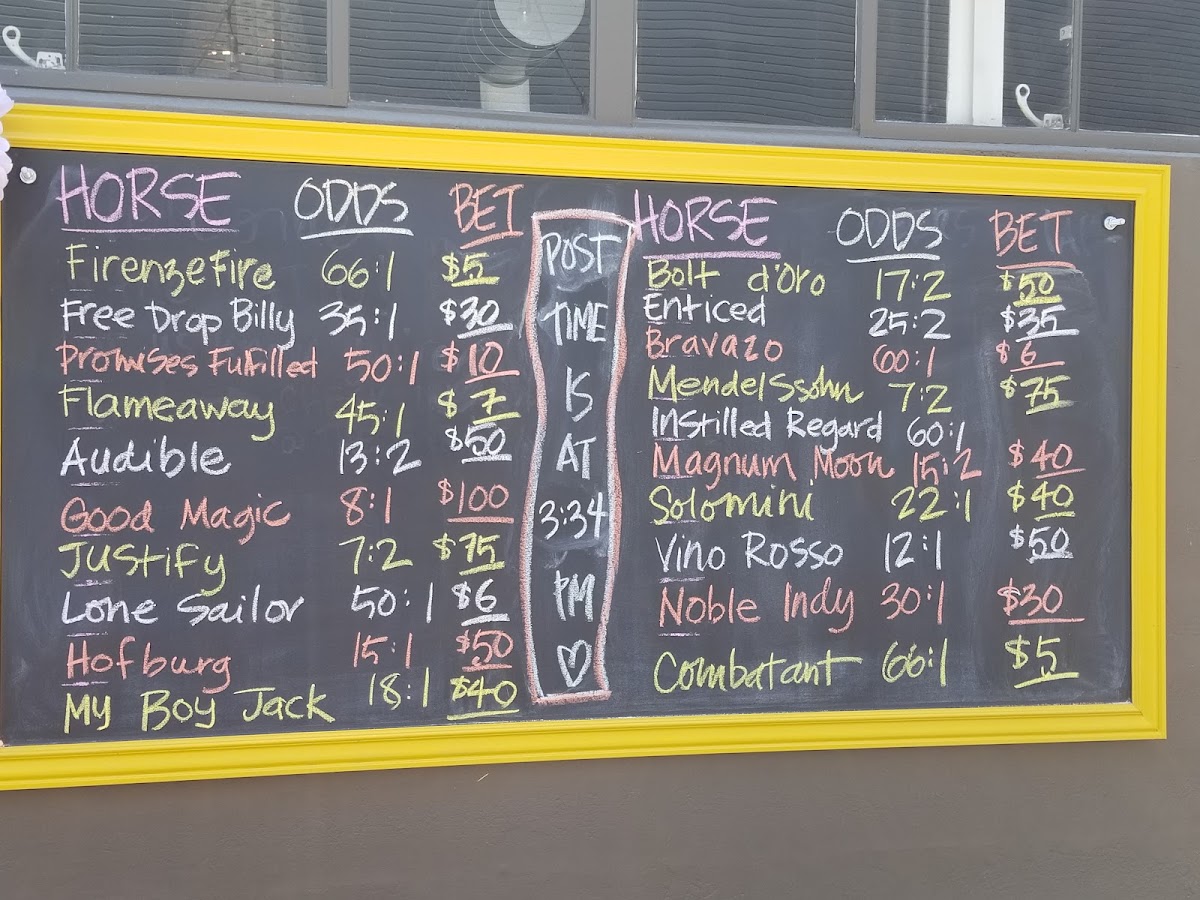 HORSE ODDS BET
Firenze Fire 66:1 $5
Free Drop Billy 35:1 $30
Promises Fulfilled 50:1 $10
Flameaway 45:1 $7
Audible 13:2 $50
Good Magic 8:1 $100
Justify 7:2 $75
Lone Sailor 50:1 $6
Hofburg 15:1 $50
My Boy Jack 18:1 $40
POST
TIME
IS
AT
3:34
PM
HORSE ODDS BET
Bolt d'Oro 17:2 $50
Enticed 25:2 $35
Bravazo 60:1 $6
Mendelssohn 7:2 $75
Instilled Regard 60:1
Magnum Moon 15:2 $40
Solomini 22:1 $40
Vino Rosso 12:1 $50
Noble Indy 30:1 $30
Combatant 66:1 $5